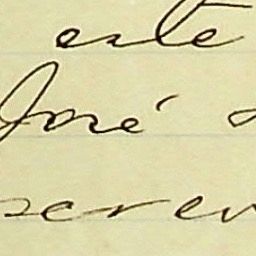 este
José
screv